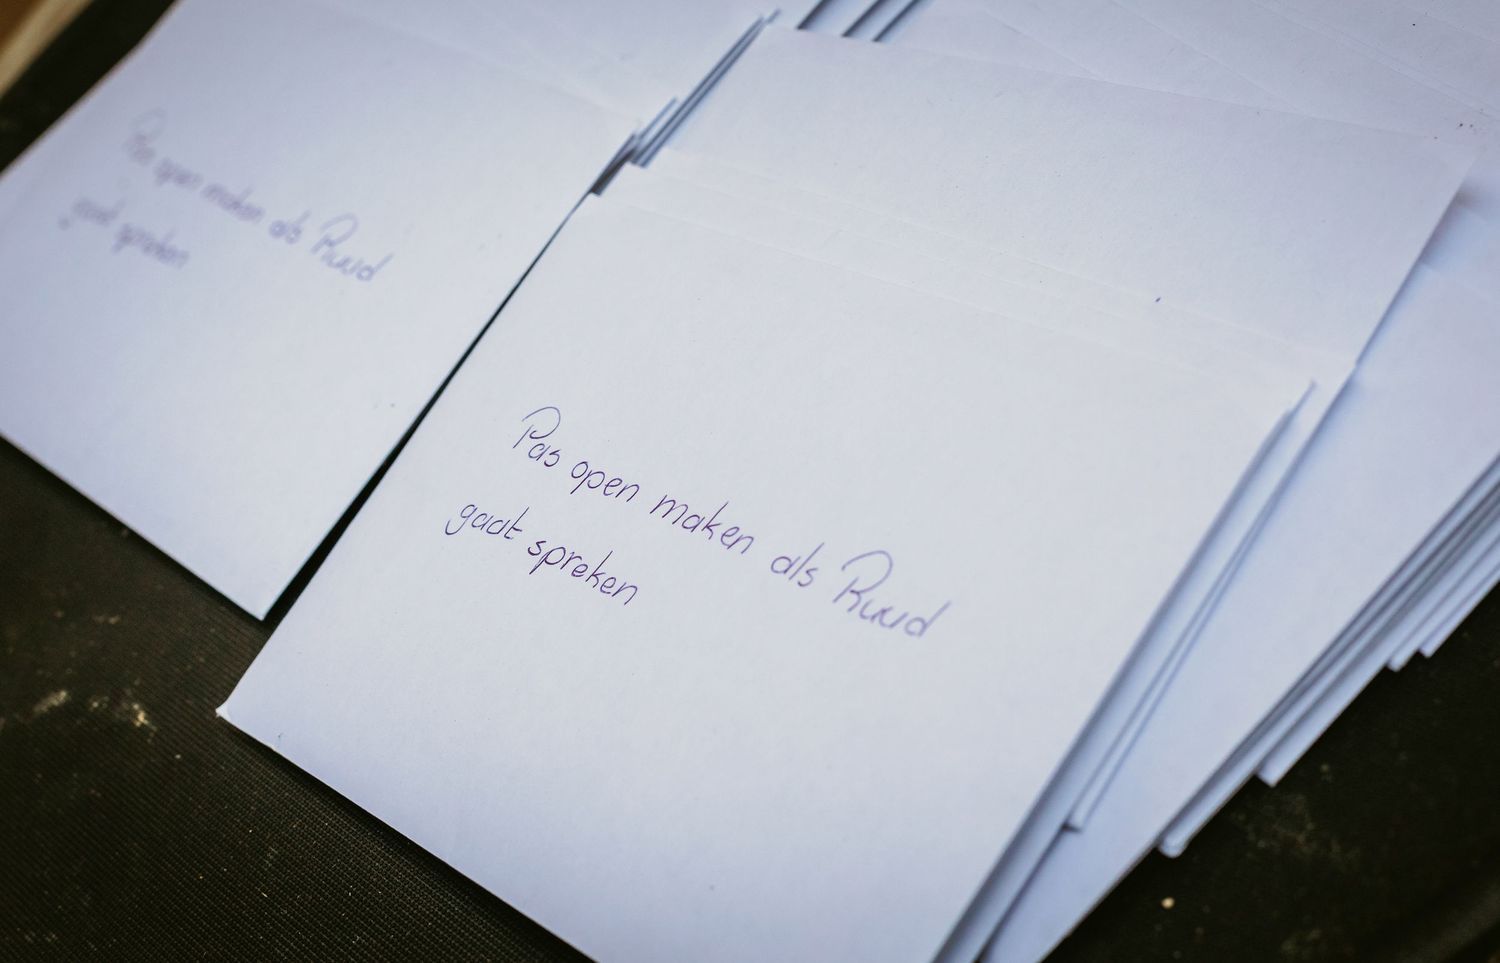 Pas open maken als Ruud
gaat spreken
Pas open maken als Ruud
gaat spreken